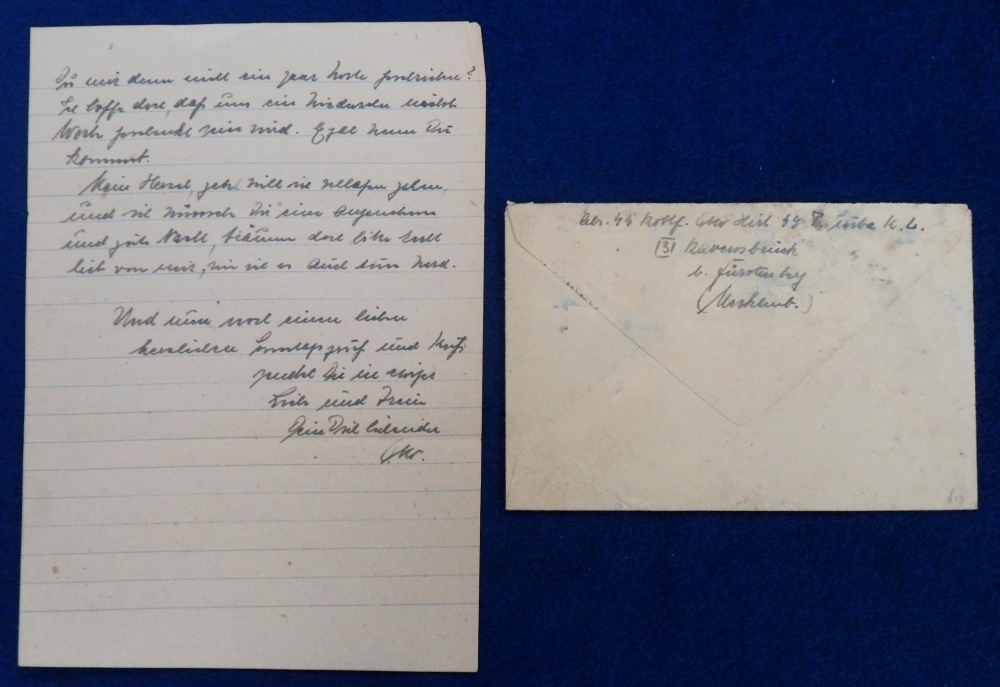 Du mir denn nicht ein paar Worte schreiben?
Ich hoffe doch, daß uns ein Wiedersehn nächste
Woche geschenkt sein wird. Egal wenn Du
kommst.
Mein Herzel, jetzt will ich schlafen gehen,
und ich wünsche Dir eine angenehme
und gute Nacht, träume doch bitte recht
lieb von mir, wie ich es auch tun werd.
Und nun noch einen lieben
herzlichen Sonntagsgruß und Kuß
sendet Dir in ewiger
Liebe und Treue
Dein Dich liebender
Otto.
Abs. SS Rottf. Otto
K. L.
(3) Ravensbrück
b. Fürstenberg
(Mecklenb.)